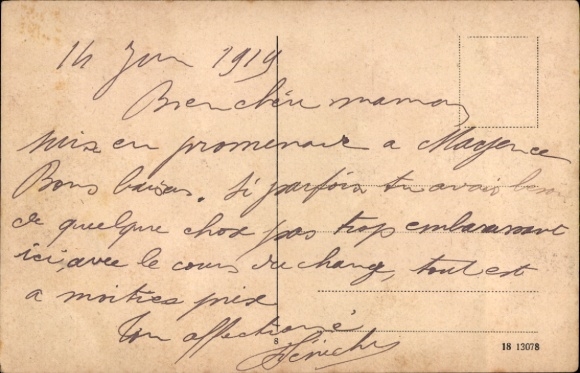 14 Juin 1919
Bien chère maman
suis en promenade a Mayence
Bons baisers. Si parfois tu avais
de quelque chose pas trop embarassant
ici, avec le cours du change, tout est
a moities prix
Ton affectionné
8
18 13078